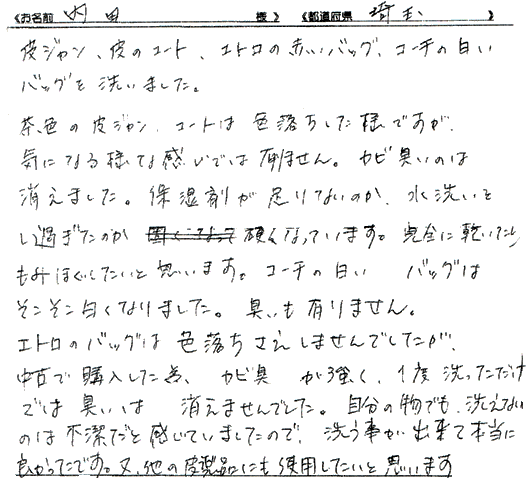 《お名前 内田 様》《都道府県 埼玉 》
皮ジャン、皮のコート、エトロの赤いバッグ、コーチの白い
バッグを洗いました。
茶色の皮ジャン、コートは色落ちした様ですが、
気になる様な感じでは有ません。カビ臭いのは
消えました。保湿剤が足りないのか、水洗いを
し過ぎたのか 硬くなっています。完全に乾いたら
もみほぐしたいと思います。コーチの白い バッグは
そこそこ白くなりました。臭いも有りません。
エトロのバッグは色落ちさえしませんでしたが、
中古で購入した為、カビ臭が強く、1度洗っただけ
では臭いは 消えませんでした。自分の物でも、洗えない
のは不潔だと感じていましたので、洗う事が出来て本当に
良かったです。又、他の皮製品にも使用したいと思います